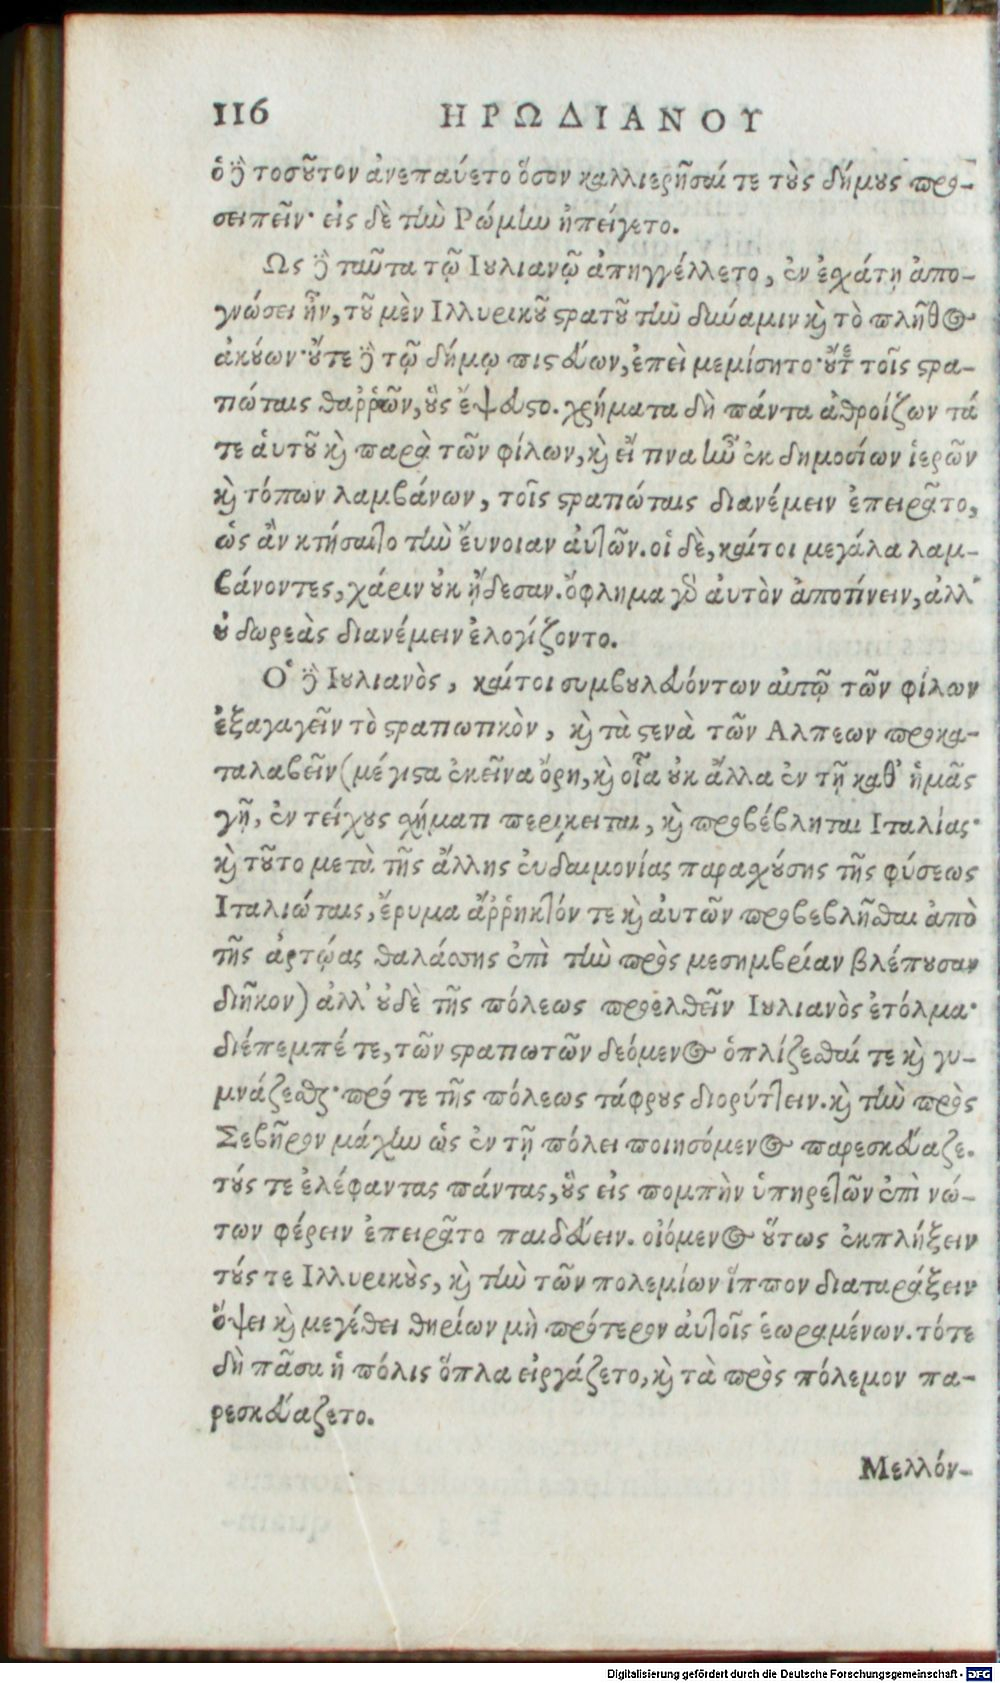 116 ΗΡΩΔΙΑΝΟΥ
ὁ δὲ τοσοῦτον ἀνεπαύετο ὅσον καλλιερῆσαί τε τοὺς δήμους προ-
σειπεῖν· εἰς δὲ τὴν Ρώμην ἠπείγετο.
Ως δὲ ταῦτα τῷ Ιουλιανῷ ἀπηγγέλλετο, ἐν ἐσχάτῃ ἀπο-
γνώσει ἦν, τοῦ μὲν Ιλλυρικοῦ στρατοῦ τὴν δύναμιν καὶ τὸ πλῆθος
ἀκούων· οὔτε δὲ τῷ δήμῳ πιστεύων, ἐπεὶ μεμίσητο· οὔτε τοῖς στρα-
τιώταις θαῤῥῶν, οὓς ἔψευστο. χρήματα δὴ πάντα ἀθροίζων τά
τε ἑαυτοῦ καὶ παρὰ τῶν φίλων, καὶ εἴ τινα ἦν ἐκ δημοσίων ἱερῶν
καὶ τόπων λαμβάνων, τοῖς στρατιώταις διανέμειν ἐπειρᾶτο,
ὡς ἂν κτήσαιτο τὴν εὔνοιαν αὐτῶν. οἱ δὲ, καίτοι μεγάλα λαμ-
βάνοντες, χάριν οὐκ ᾔδεσαν. ὄφλημα γὰρ αὐτὸν ἀποτίνειν, ἀλλ'
οὐ δωρεὰς διανέμειν ἐλογίζοντο.
Ο δὲ Ιουλιανὸς, καίτοι συμβουλευόντων αὐτῷ τῶν φίλων
ἐξαγαγεῖν τὸ στρατιωτικὸν, καὶ τὰ στενὰ τῶν Αλπεων προκα-
ταλαβεῖν (μέγιστα ἐκεῖνα ὄρη, καὶ οἷα οὐκ ἄλλα ἐν τῇ καθ' ἡμᾶς
γῇ, ἐν τείχους σχήματι περίκειται, καὶ προβέβληται Ιταλίας·
καὶ τοῦτο μετὰ τῆς ἄλλης εὐδαιμονίας παρασχούσης τῆς φύσεως
Ιταλιώταις, ἔρυμα ἄῤῥηκτόν τε καὶ αὐτῶν προβεβλῆσθαι ἀπὸ
τῆς ἀρκτῴας θαλάσσης ἐπὶ τὴν πρὸς μεσημβρίαν βλέπουσαν
διῆκον) ἀλλ' οὐδὲ τῆς πόλεως προελθεῖν Ιουλιανὸς ἐτόλμα·
διέπεμπέ τε, τῶν στρατιωτῶν δεόμενος ὁπλίζεσθαί τε καὶ γυ-
μνάζεσθαι· πρό τε τῆς πόλεως τάφρους διορύττειν. καὶ τὴν πρὸς
Σεβῆρον μάχην ὡς ἐν τῇ πόλει ποιησόμενος παρεσκεύαζε.
τούς τε ἐλέφαντας πάντας, οὓς εἰς πομπὴν ὑπηρετῶν ἐπὶ νώ-
των φέρειν ἐπειρᾶτο παιδεύειν. οἰόμενος οὕτως ἐκπλήξειν
τούς τε Ιλλυρικοὺς, καὶ τὴν τῶν πολεμίων ἵππον διαταράξειν
ὄψει καὶ μεγέθει θηρίων μὴ πρότερον αὐτοῖς ἑωραμένων. τότε
δὴ πᾶσα ἡ πόλις ὅπλα εἰργάζετο, καὶ τὰ πρὸς πόλεμον πα-
ρεσκεύαζετο.
Μελλόν-
Digitalisierung gefördert durch die Deutsche Forschungsgemeinschaft - DFG